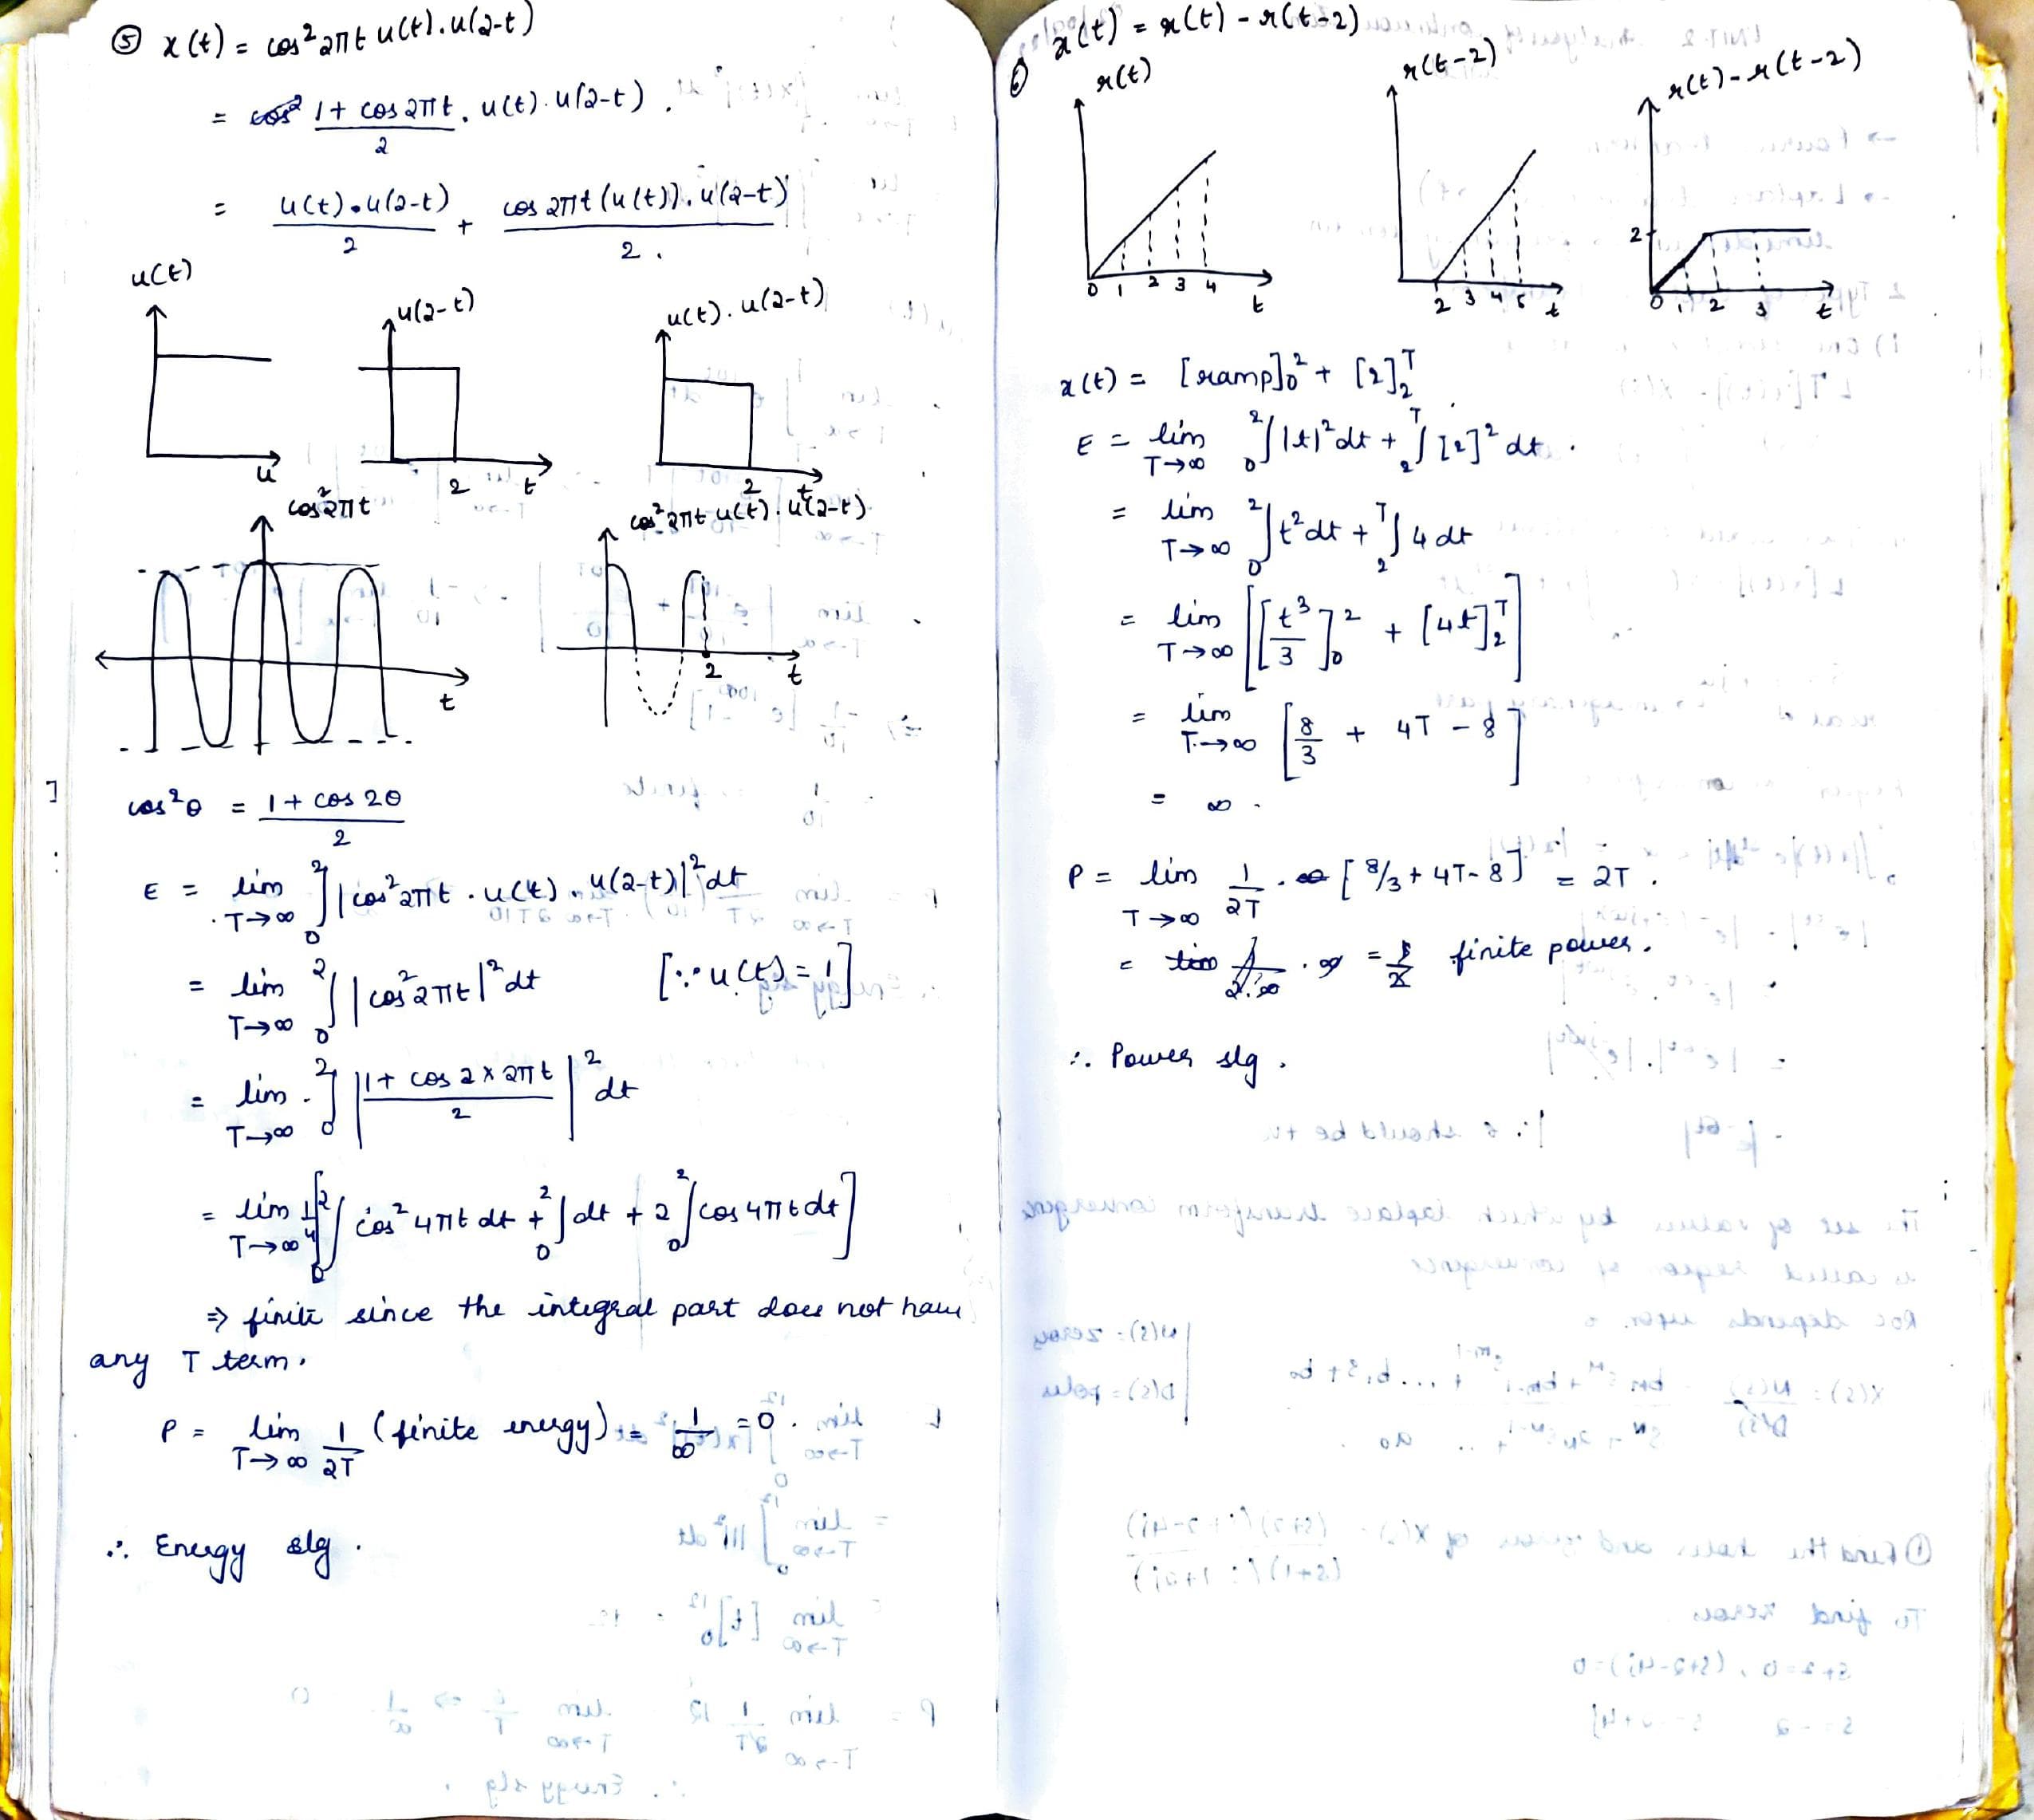 ⑤ x(t) = cos² 2πt u(t).u(2-t)
= 1 + cos 2πt / 2 . u(t).u(2-t).
= u(t).u(2-t) / 2 + cos 2πt (u(t)).u(2-t) / 2.
u(t)
u(2-t)
u(t).u(2-t)
u
2 t
2 t
cos² 2πt
cos² 2πt u(t).u(2-t)
t
2 t
cos²θ = 1 + cos 2θ / 2
E = lim T→∞ ₀∫² |cos² 2πt . u(t) . u(2-t)|² dt
= lim T→∞ ₀∫² |cos² 2πt|² dt [∵ u(t) = 1]
= lim T→∞ ₀∫² |1 + cos 2×2πt / 2|² dt
= lim T→∞ 1/4 [₀∫² cos² 4πt dt + ₀∫² dt + 2 ₀∫² cos 4πt dt]
⇒ finite since the integral part does not have
any T term.
P = lim T→∞ 1/2T (finite energy) = 1/∞ = 0.
∴ Energy slg.
6 x(t) = r(t) - r(t-2)
r(t)
r(t-2)
r(t) - r(t-2)
2
0 1 2 3 4 t
2 3 4 5 t
0 1 2 3 t
x(t) = [ramp]₀² + [2]₂ᵀ
E = lim T→∞ ₀∫² |t|² dt + ₂∫ᵀ [2]² dt.
= lim T→∞ ₀∫² t² dt + ₂∫ᵀ 4 dt
= lim T→∞ [[t³/3]₀² + [4t]₂ᵀ]
= lim T→∞ [8/3 + 4T - 8]
= ∞.
P = lim T→∞ 1/2T . [8/3 + 4T - 8] = 2T.
= finite power.
∴ Power slg.